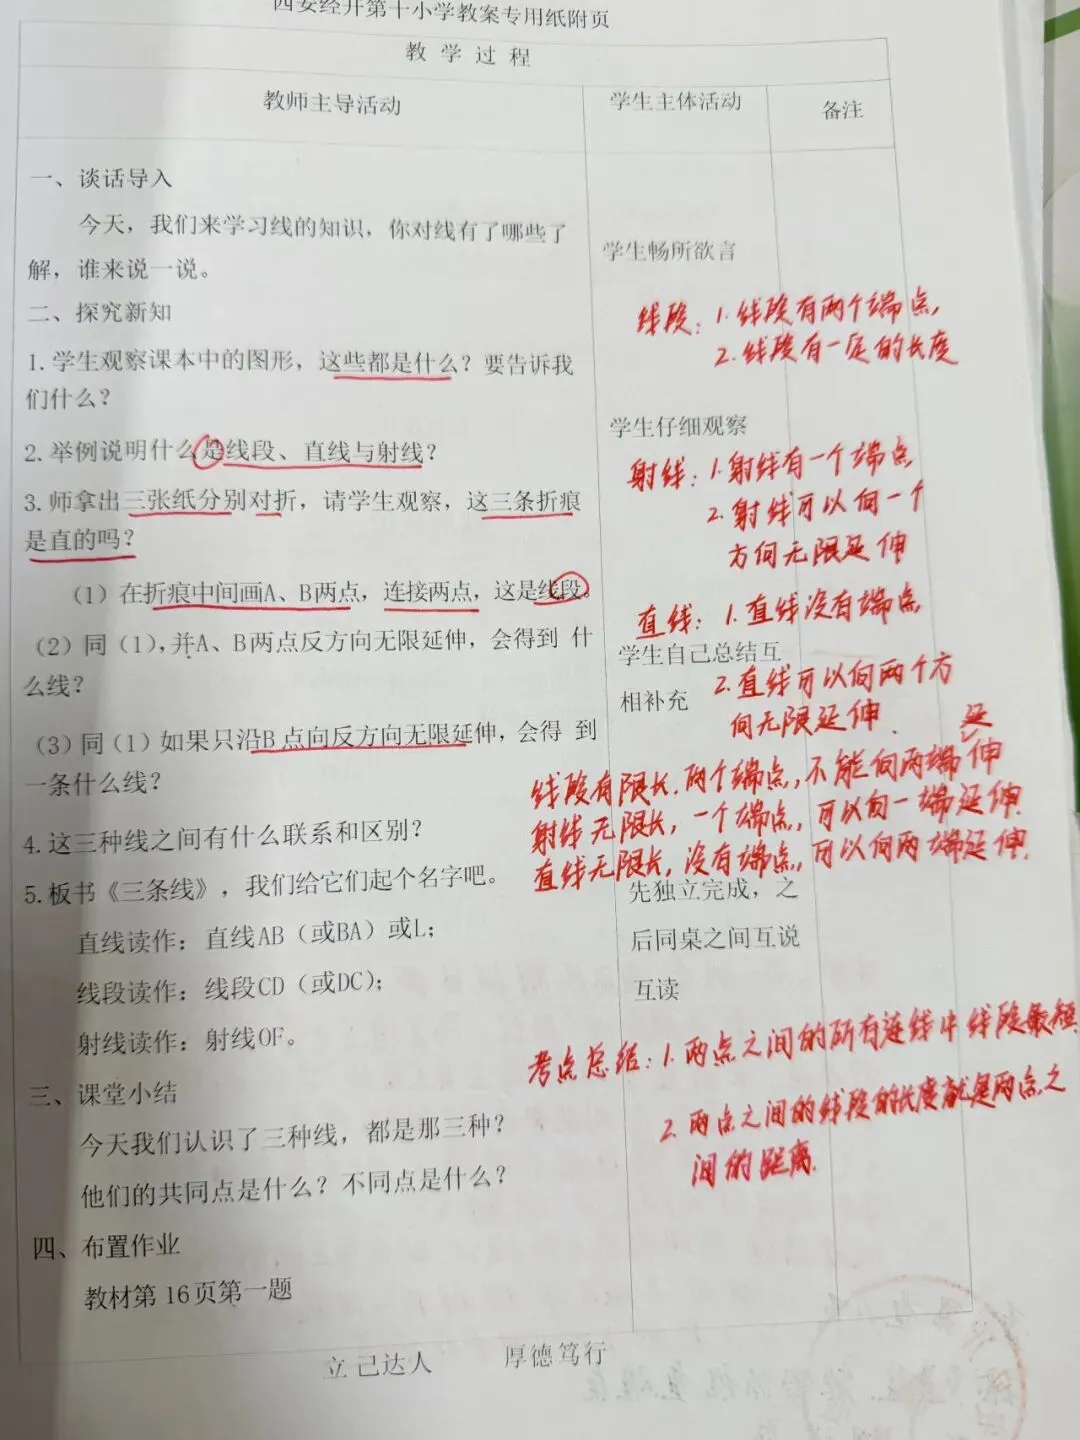 西安经开第十小学教案专用纸附页
教 学 过 程
教师主导活动
学生主体活动
备注
一、谈话导入
今天，我们来学习线的知识，你对线有了哪些了
解，谁来说一说。
学生畅所欲言
二、探究新知
线段：1.线段有两个端点,
2.线段有一定的长度
1.学生观察课本中的图形，这些都是什么？要告诉我
们什么？
学生仔细观察
2.举例说明什么是线段、直线与射线？
射线：1.射线有一个端点
2.射线可以向一个
方向无限延伸
3.师拿出三张纸分别对折，请学生观察，这三条折痕
是直的吗？
（1）在折痕中间画A、B两点，连接两点，这是线段。
直线：1.直线没有端点
（2）同（1），并A、B两点反方向无限延伸，会得到 什
么线？
学生自己总结互
相补充
2.直线可以向两个方
向无限延伸.
（3）同（1）如果只沿B点向反方向无限延伸，会得 到
一条什么线？
延
线段有限长.两个端点,不能向两端伸
射线无限长，一个端点，可以向一端延伸.
直线无限长，没有端点，可以向两端延伸.
4.这三种线之间有什么联系和区别？
5.板书《三条线》，我们给它们起个名字吧。
先独立完成，之
后同桌之间互说
互读
直线读作：直线AB（或BA）或L；
线段读作：线段CD（或DC）；
射线读作：射线OF。
考点总结：1.两点之间的所有连线中线段最短
2.两点之间的线段的长度就是两点之
间的距离.
三、课堂小结
今天我们认识了三种线，都是那三种？
他们的共同点是什么？不同点是什么？
四、布置作业
教材第16页第一题
立己达人 厚德笃行